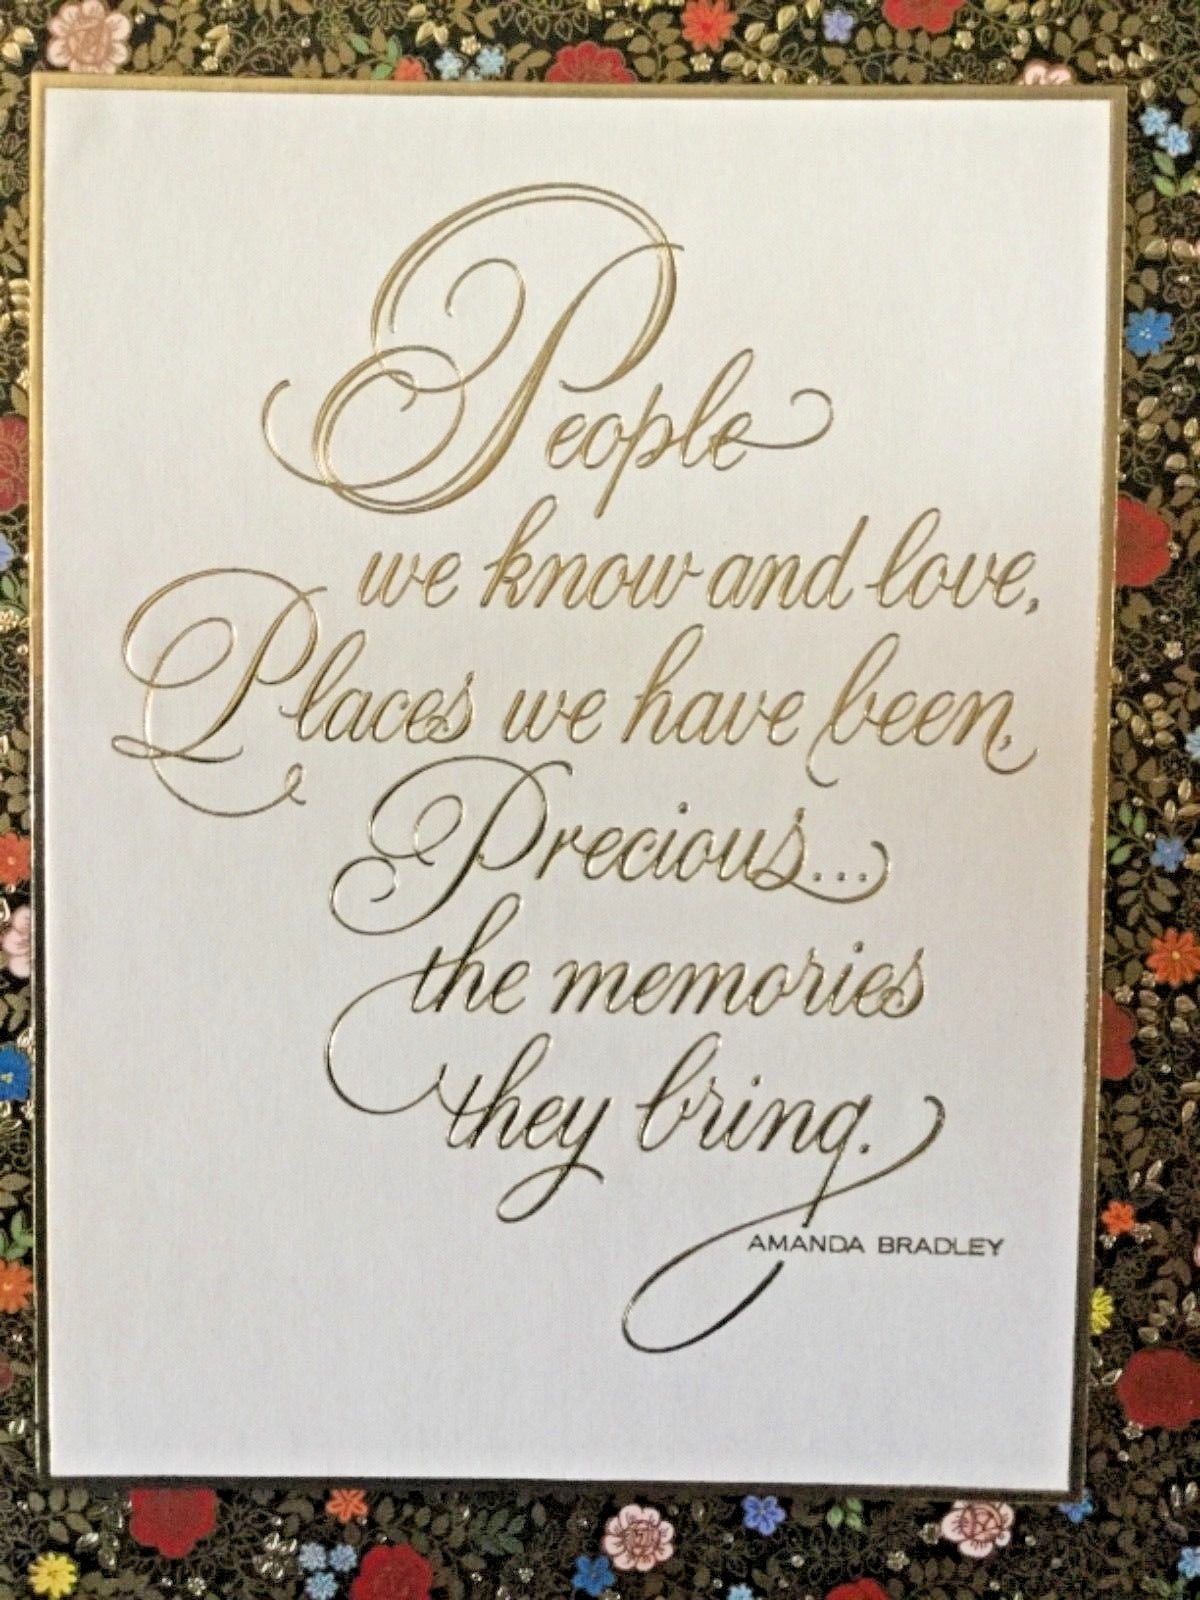 People
we know and love,
Places we have been,
Precious...
the memories
they bring.
AMANDA BRADLEY